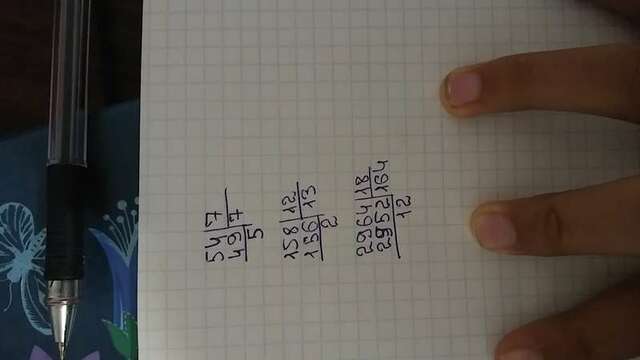 54 7
49 7
5
158 12
156 13
2
2964 18
2952 164
12